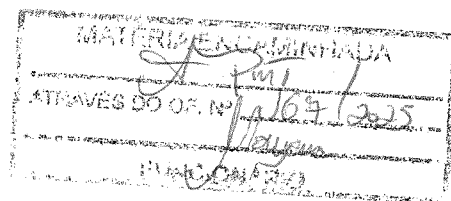 MATÉRIA ENCAMINHADA
ATRAVÉS DO OF. Nº 167/2025
FUNCIONÁRIO